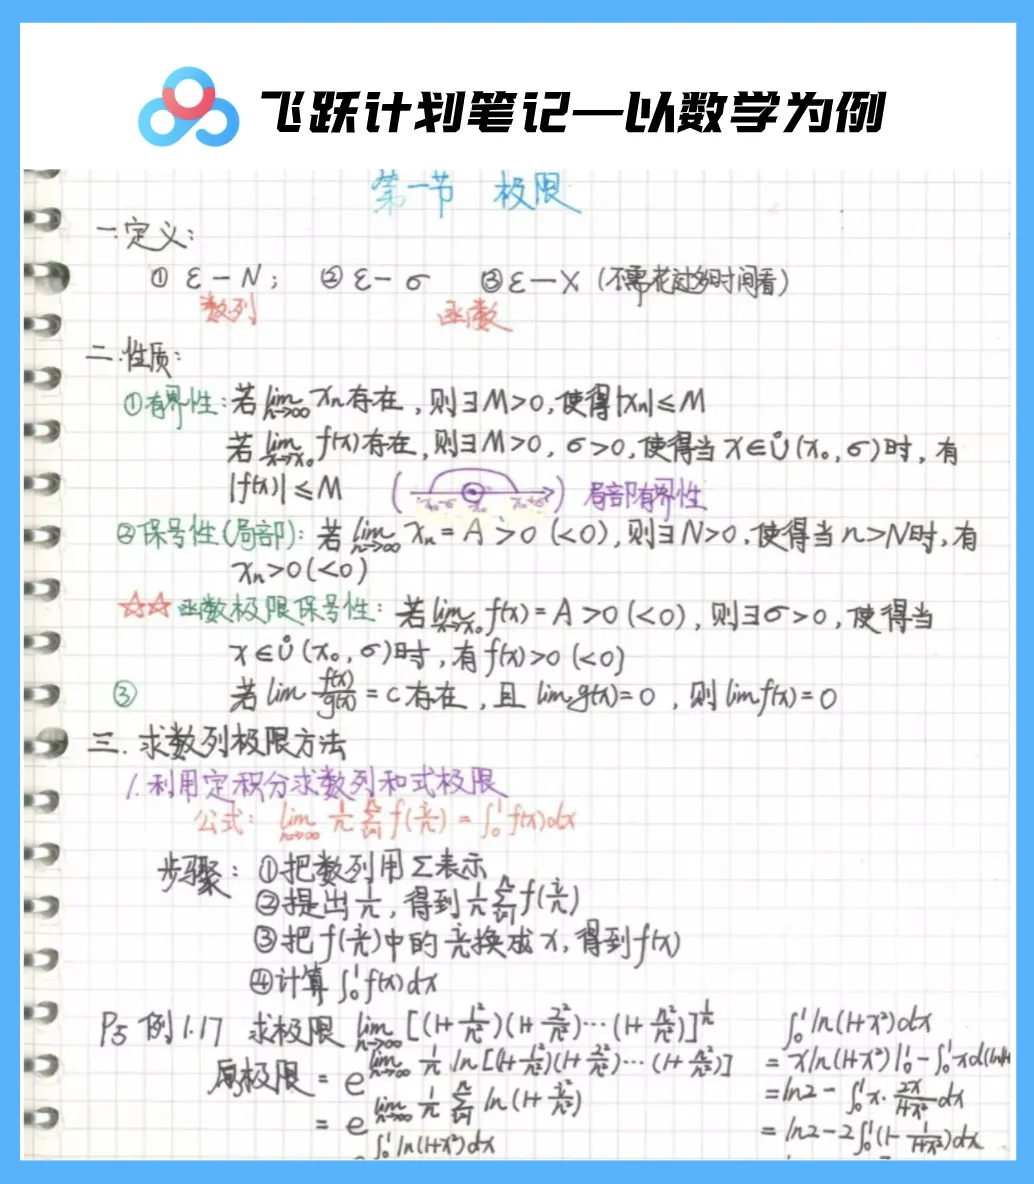 飞跃计划笔记—以数学为例
第一节 极限
一.定义:
① ε－N; ② ε－σ ③ ε－X (不需花过多时间看)
数列 函数
二.性质:
①有界性:若lim n→∞ xn存在,则∃M>0,使得|xn|≤M
若lim x→x₀ f(x)存在,则∃M>0,σ>0,使得当x∈Ů(x₀,σ)时,有
|f(x)|≤M ( x₀-σ x₀ x₀+σ ) 局部有界性
②保号性(局部):若lim n→∞ xn=A>0(<0),则∃N>0,使得当n>N时,有
xn>0(<0)
☆☆函数极限保号性:若lim x→x₀ f(x)=A>0(<0),则∃σ>0,使得当
x∈Ů(x₀,σ)时,有f(x)>0(<0)
③ 若lim f(x)/g(x)=c存在,且lim g(x)=0,则lim f(x)=0
三.求数列极限方法
1.利用定积分求数列和式极限
公式: lim n→∞ 1/n Σ(i=1→n) f(i/n)=∫₀¹f(x)dx
步骤:①把数列用Σ表示
②提出1/n,得到1/n Σ(i=1→n) f(i/n)
③把f(i/n)中的i/n换成x,得到f(x)
④计算∫₀¹f(x)dx
P5 例1.17 求极限 lim n→∞ [(1+1²/n²)(1+2²/n²)···(1+n²/n²)]^(1/n)
原极限=e^(lim n→∞ 1/n ln[(1+1²/n²)(1+2²/n²)···(1+n²/n²)])
=e^(lim n→∞ 1/n Σ(i=1→n) ln(1+i²/n²))
∫₀¹ln(1+x²)dx
∫₀¹ln(1+x²)dx
=xln(1+x²)|₀¹-∫₀¹xd(ln(1+
=ln2-∫₀¹x·2x/(1+x²)dx
=ln2-2∫₀¹(1-1/(1+x²))dx